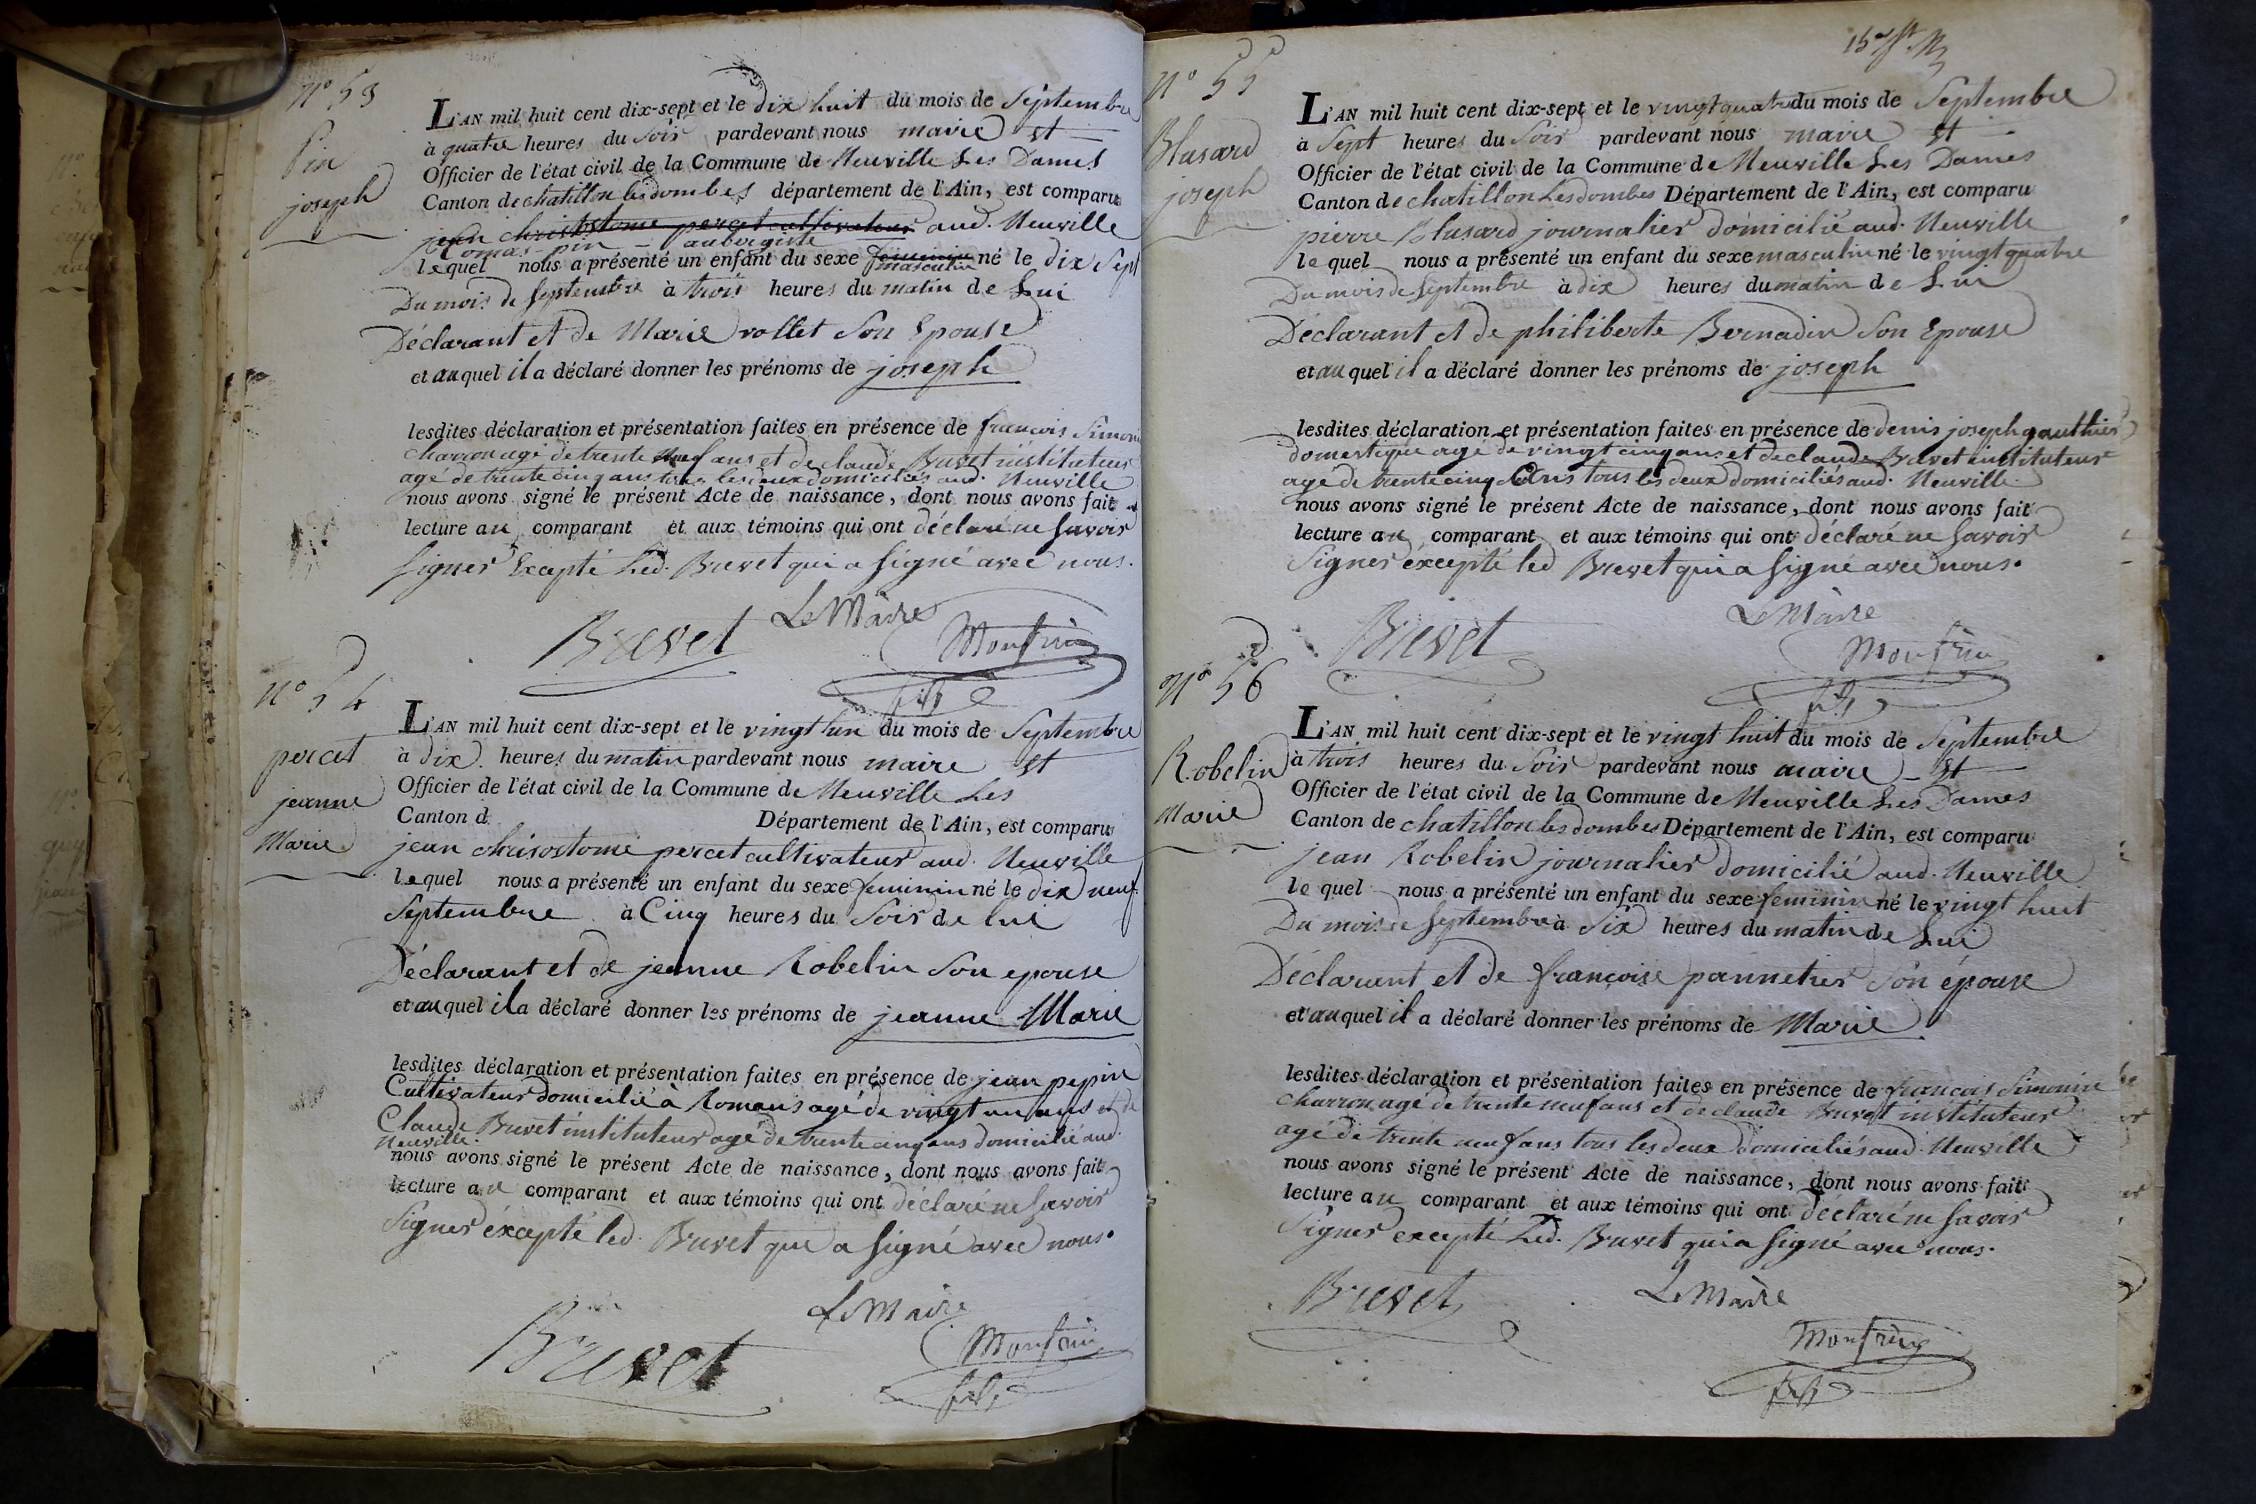 N° 53
Pin
joseph
L'AN mil huit cent dix-sept et le dix huit du mois de Septembre
à quatre heures du Soir pardevant nous maire et
Officier de l'état civil de la Commune de Neuville Les Dames
Canton de chatillon les dombes département de l'Ain, est comparu
jean chrisostome percet cultivateur aud. Neuville
Tomas pin aubergiste
lequel nous a présenté un enfant du sexe feminin né le dix Sept
masculin
Du mois de Septembre à trois heures du matin de Lui
Déclarant et de Marie vollet Son Epouse
et auquel il a déclaré donner les prénoms de joseph
lesdites déclaration et présentation faites en présence de françois Simonin
charron agé de trente neuf ans et de claude Brevet instituteur
agé de trente cinq ans tous les deux domiciliés aud. Neuville
nous avons signé le présent Acte de naissance, dont nous avons fait
lecture au comparant et aux témoins qui ont déclaré ne Savoir
Signer Excepté Led. Brevet qui a Signé avec nous.
Brevet Le Maire
Monfrin
fils
N° 54
percet
jeanne
Marie
L'AN mil huit cent dix-sept et le vingt un du mois de Septembre
à dix heures du matin pardevant nous maire et
Officier de l'état civil de la Commune de Neuville Les
Canton d Département de l'Ain, est comparu
jean chrisostome percet cultivateur aud. Neuville
lequel nous a présenté un enfant du sexe feminin né le dix neuf
Septembre à Cinq heures du Soir de lui
Déclarant et de jeanne Robelin Son epouse
et auquel il a déclaré donner les prénoms de jeanne Marie
lesdites déclaration et présentation faites en présence de jean pepin
Cultivateur domicilié à Romans agé de vingt un ans et de
Claude Brevet instituteur agé de trente cinq ans domicilié aud.
Neuville.
nous avons signé le présent Acte de naissance, dont nous avons fait
lecture au comparant et aux témoins qui ont déclaré ne Savoir
Signer éxcepté led. Brevet que a Signé avec nous.
Le Maire
Brevet Monfrin
fils
N° 55
Blusard
joseph
L'AN mil huit cent dix-sept et le vingt quatre du mois de Septembre
à Sept heures du Soir pardevant nous maire et
Officier de l'état civil de la Commune de Neuville Les Dames
Canton de chatillon Les dombes Département de l'Ain, est comparu
pierre Blusard journalier domicilié aud. Neuville
le quel nous a présenté un enfant du sexe masculin né le vingt quatre
Du mois de Septembre à dix heures du matin de Lui
Déclarant et de philiberte Bernadin Son Epouse
et au quel il a déclaré donner les prénoms de joseph
lesdites déclaration et présentation faites en présence de denis joseph gauthier
domestique agé de vingt cinq ans et de claude Brevet instituteur
agé de trente cinq ans tous les deux domiciliés aud. Neuville
nous avons signé le présent Acte de naissance, dont nous avons fait
lecture au comparant et aux témoins qui ont déclaré ne Savoir
Signer éxcepté led Brevet qui a Signé avec nous.
Le Maire
Brevet Monfrin
fils
N° 56
Robelin
Marie
L'AN mil huit cent dix-sept et le vingt huit du mois de Septembre
à trois heures du Soir pardevant nous maire et
Officier de l'état civil de la Commune de Neuville Les Dames
Canton de chatillon les dombes Département de l'Ain, est comparu
jean Robelin journalier domicilié aud. Neuville
le quel nous a présenté un enfant du sexe feminin né le vingt huit
Du mois de Septembre à Six heures du matin de Lui
Déclarant et de françoise pannetier Son épouse
et auquel il a déclaré donner les prénoms de Marie
lesdites déclaration et présentation faites en présence de françois Simonin
charron agé de trente neuf ans et de claude Brevet instituteur
agé de trente neuf ans tous les deux domiciliés aud. Neuville
nous avons signé le présent Acte de naissance, dont nous avons fait
lecture au comparant et aux témoins qui ont déclaré ne Savoir
Signer excepté Led. Brevet qui a Signé avec nous.
Brevet Le Maire
Monfrin
fils